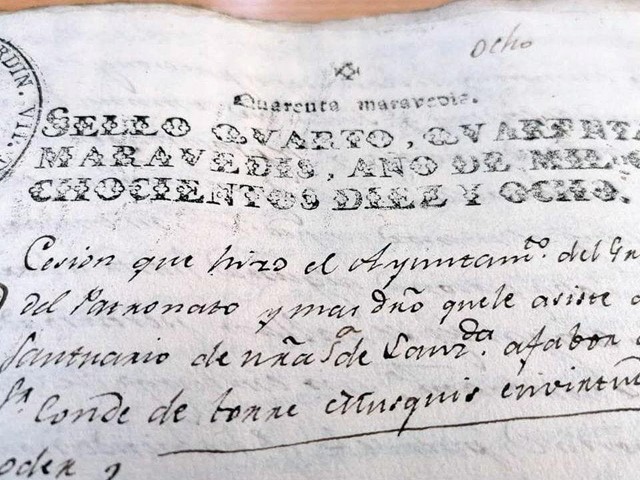 Ocho
RDIN. VII.
Quarenta maravedis.
SELLO QVARTO, QVARENTA
MARAVEDIS, AÑO DE MIL O
CHOCIENTOS DIEZ Y OCHO.
Cesion que hizo el Ayuntam.to del
del Patronato y mas dro quele asiste a
Santuario de nra Sa de afabor
Sr Conde de torre Musquis envirtu
oder